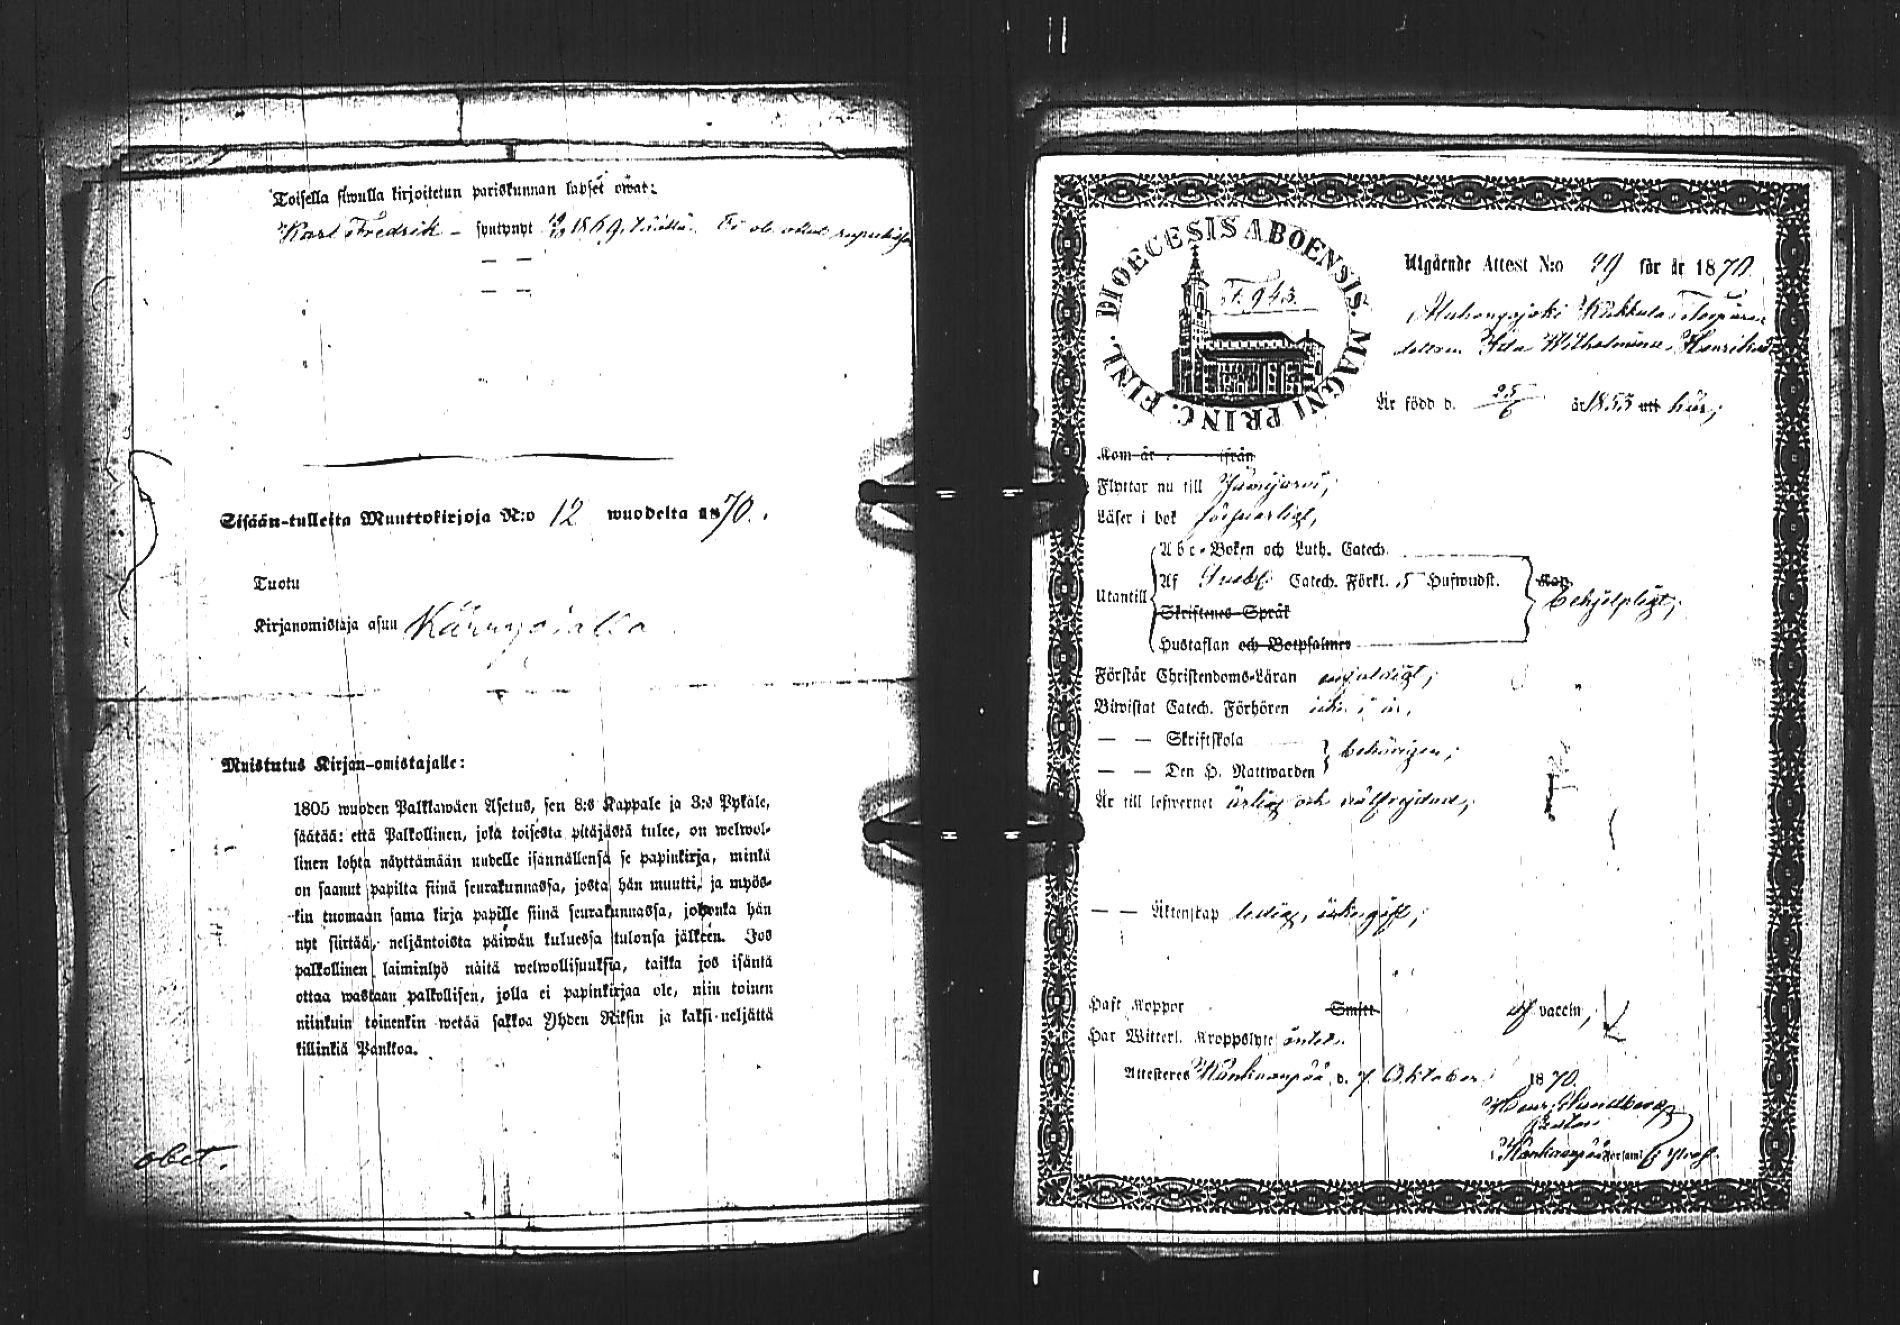 Toisella siwulla kirjoitetun pariskunnan lapset owat:
Karl Fredrik – syntynyt 1869. Ei ole ollut
— —
— —
Sisään-tulleita Muuttokirjoja N:o 12 wuodelta 1870.
Tuotu
Kirjanomistaja asuu
Muistutus Kirjan-omistajalle:
1805 wuoden Palkkawäen Asetus, sen 8:s Kappale ja 3:s Pykäle,
säätää: että Palkollinen, joka toisesta pitäjästä tulee, on welwol-
linen kohta näyttämään uudelle isännällensä se papinkirja, minkä
on saanut papilta siinä seurakunnassa, josta hän muutti, ja myös-
kin tuomaan sama kirja papille siinä seurakunnassa, johonka hän
nyt siirtää, neljäntoista päiwän kuluessa tulonsa jälkeen. Jos
palkollinen laiminlyö näitä welwollisuuksia, taikka jos isäntä
ottaa wastaan palkollisen, jolla ei papinkirjaa ole, niin toinen
niinkuin toinenkin wetää sakkoa Yhden Riksin ja kaksi-neljättä
killinkiä Pankkoa.
obet.
DIOECESIS ABOENSIS. MAGNI PRINC. FINL.
T. 943.
Utgående Attest N:o 99 för år 1870.
Alahongojoki Kukkula Torpare
dottern Ida Wilhelmina Henriksd
Är född d. 25/6 år 1853 uti här;
Kom år ifrån
Flyttar nu till Jämijärvi;
Läser i bok försvarligt,
Utantill
Abc-Boken och Luth. Catech.
Af Catech. Förkl. 5 Hufwudst.
Skriftenes Språk
Hustaflan och Botpsalmer
Kap.
behjelpligt;
Förstår Christendoms-Läran enfaldigt;
Biwistat Catech. Förhören i år.
— — Skriftskola
— — Den H. Nattwarden
behörigen;
Är till lefwernet ärlig och wälfrejdad;
— — Äktenskap ledig,
Haft Koppor Smitt af vaccin;
Har Witterl. Kroppslyte
Attesteras Kankaanpää d. 7 Oktober 1870.
Henr. Sundberg
Kankaanpää Församl.